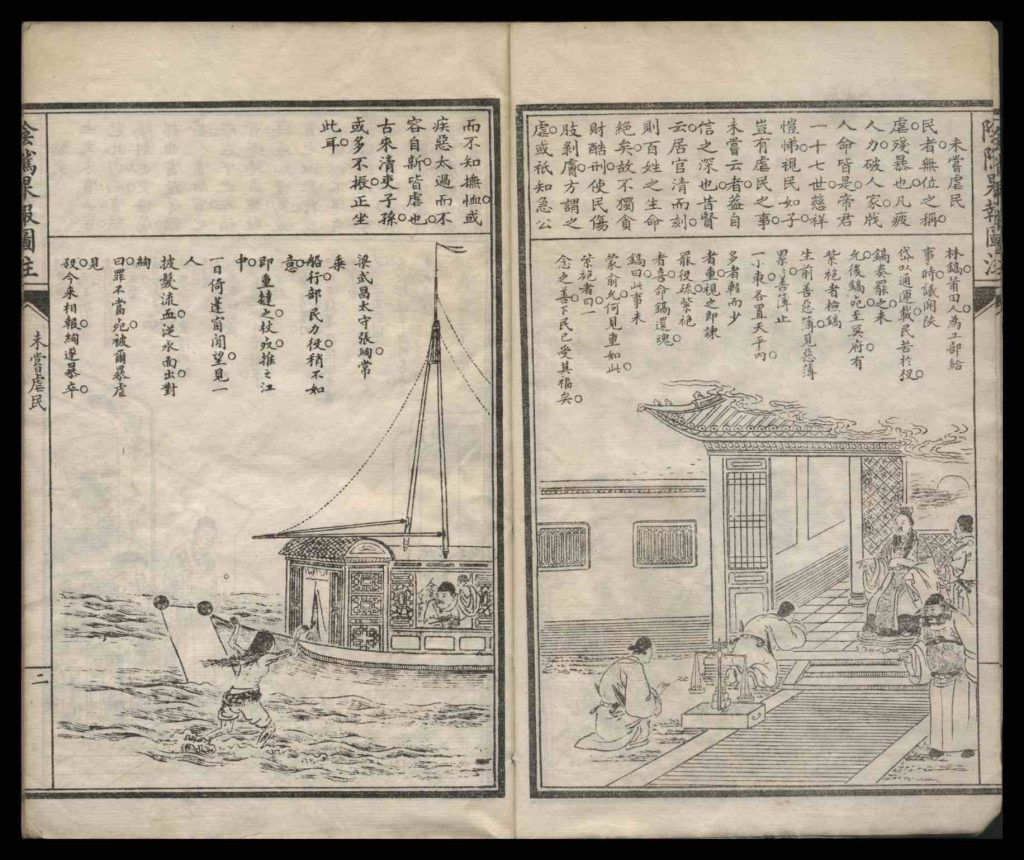 陰隲果報圖註
未嘗虐民
民者無位之稱
虐殘暴也凡疲
人力破人家戕
人命皆是帝君
一十七世慈祥
愷悌視民如子
豈有虐民之事
未嘗云者蓋自
信之深也昔賢
云居官清而刻
則百姓之生命
絕矣故不獨貪
財酷刑使民傷
肢剝膚方謂之
虐或祇知急公
林鎬莆田人為工部給
事時議開陝
岱以通運載民苦於役
鎬奏罷之未
允後鎬宛至冥府有
紫袍者檢鎬
生前善惡簿見惡簿
累〻善簿止
一小束各置天平內
多者輕而少
者重視之即諫
罷役疏紫袍
者喜命鎬還魂
鎬曰此事未
蒙俞允何見重如此
紫袍者曰一
念之善下民已受其福矣
而不知撫恤或
疾惡太過而不
容自新皆虐也
古來清吏子孫
或多不振正坐
此耳
梁武昌太守張絢常
乘
船行部民力役稍不如
意
即重撻之杖殺推之江
中
一日倚蓬窗閒望見一
人
披髮流血從水面出對
絢
曰罪不當宛被爾暴虐
見
殺今來相報絢遂暴卒
陰騭果報圖註
未嘗虐民
二